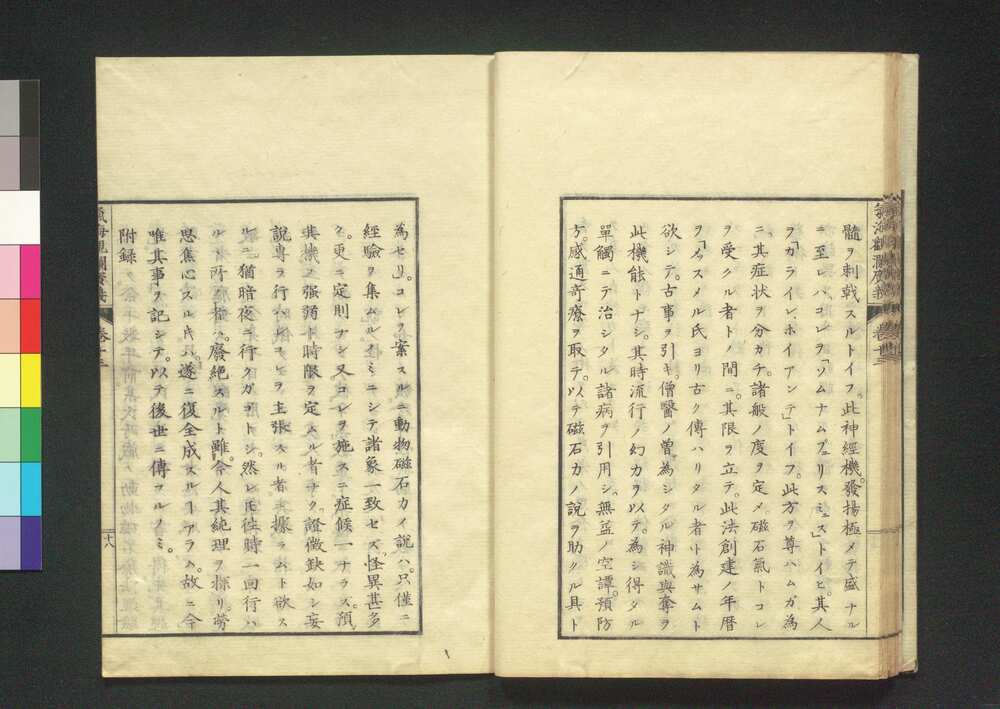 髓ヲ刺戟スルトイフ。此神經機。發揚極メテ盛ナル
ニ至レバ。コレヲ「ソムナムプリスミュス」トイヒ。其人
ヲ「カライレ、ホイアンデ」トイフ。此方ヲ尊ハムガ為
ニ。其症状ヲ分カチ。諸般ノ度ヲ定メ。磁石氣トコレ
ヲ受クル者トノ間ニ。其限ヲ立テ。此法創建ノ年暦
ヲ「メスメル氏ヨリ古ク傳ハリタル者ト為サムト
欲シテ。古事ヲ引キ。僧醫ノ曽為シタル神識與奪ヲ
此機能トナシ。其時流行ノ幻力ヲ以テ。為シ得タル
單觸ニテ治シタル諸病ヲ引用シ。無益ノ空譚。預防
方。感通奇療ヲ取テ。以テ磁石力ノ説ヲ助クル具ト
為セリ。コレヲ案スルニ動物磁石力イ説ハ。只僅ニ
經驗ヲ集ムルノミニシテ諸象一致セズ。怪異甚多
ク。更ニ定則ナシ。又コレヲ施スニ症候一ナラズ。預
其機ノ強弱ト時限ヲ定ムル者ナク。證徴缺如シ妄
説専ラ行ハル
ヲ主張スル者ト據ラムト欲ス
ルニ。猶暗夜ニ行クガゴトシ。然レ𪜈往時一回行ハ
廢絶スルト雖。今人其純理ヲ探リ。労
思焦心スル𪜈。遂ニ復全成スルヿアラム。故ニ今
唯其事ヲ記シテ。以テ後世ニ傳フルノミ。
附録
卷廿三
十八